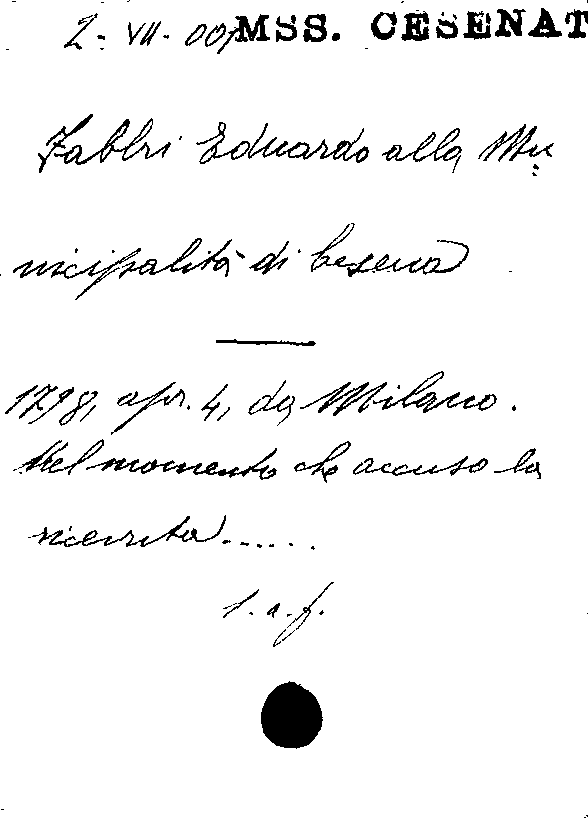 2. VII. 001 MSS. CESENAT
Fabbri Eduardo alla Mu=
nicipalità di Cesena
1798, apr. 4, da Milano.
Nel momento che accuso la
ricevuta......
l. a. f.